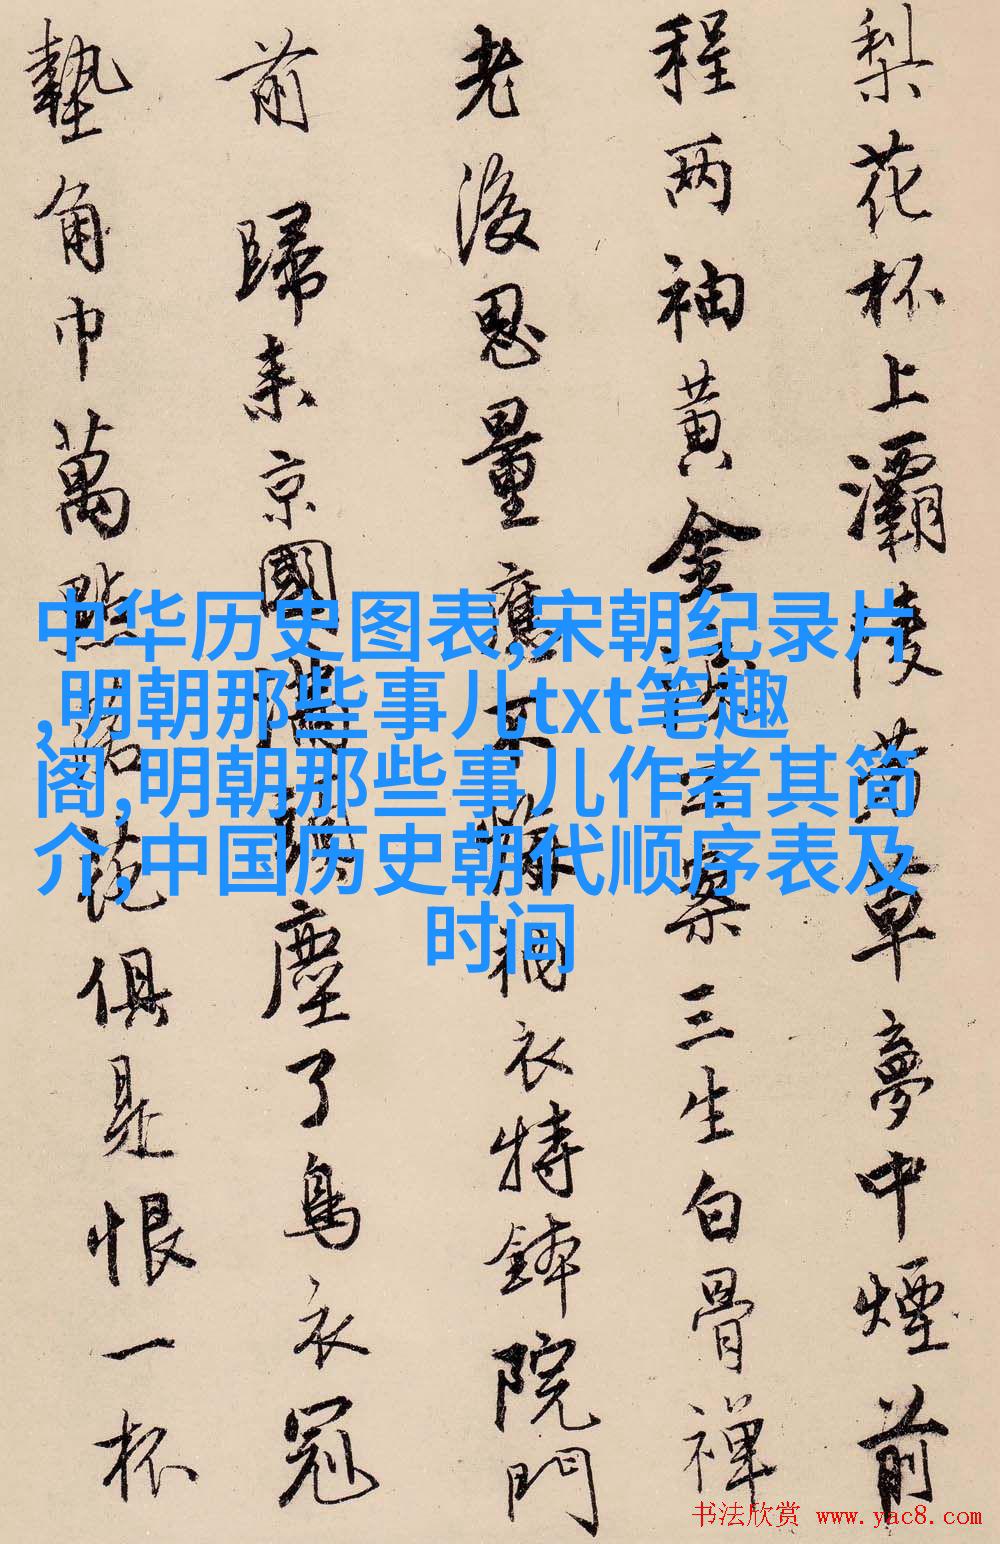 梨花杯上灞陵黄草夢中煙前
程两袖黄金淚公案三生白骨禪
老後思量應不悔衲衣持鉢院門
前 歸来京國隔塵了鳥衣冠
墊角巾萬點落花俱是恨一杯
中华历史图表,宋朝纪录片
,明朝那些事儿txt笔趣
阁,明朝那些事儿作者其简
介,中国历史朝代顺序表及
时间
书法欣赏 www.yac8.com